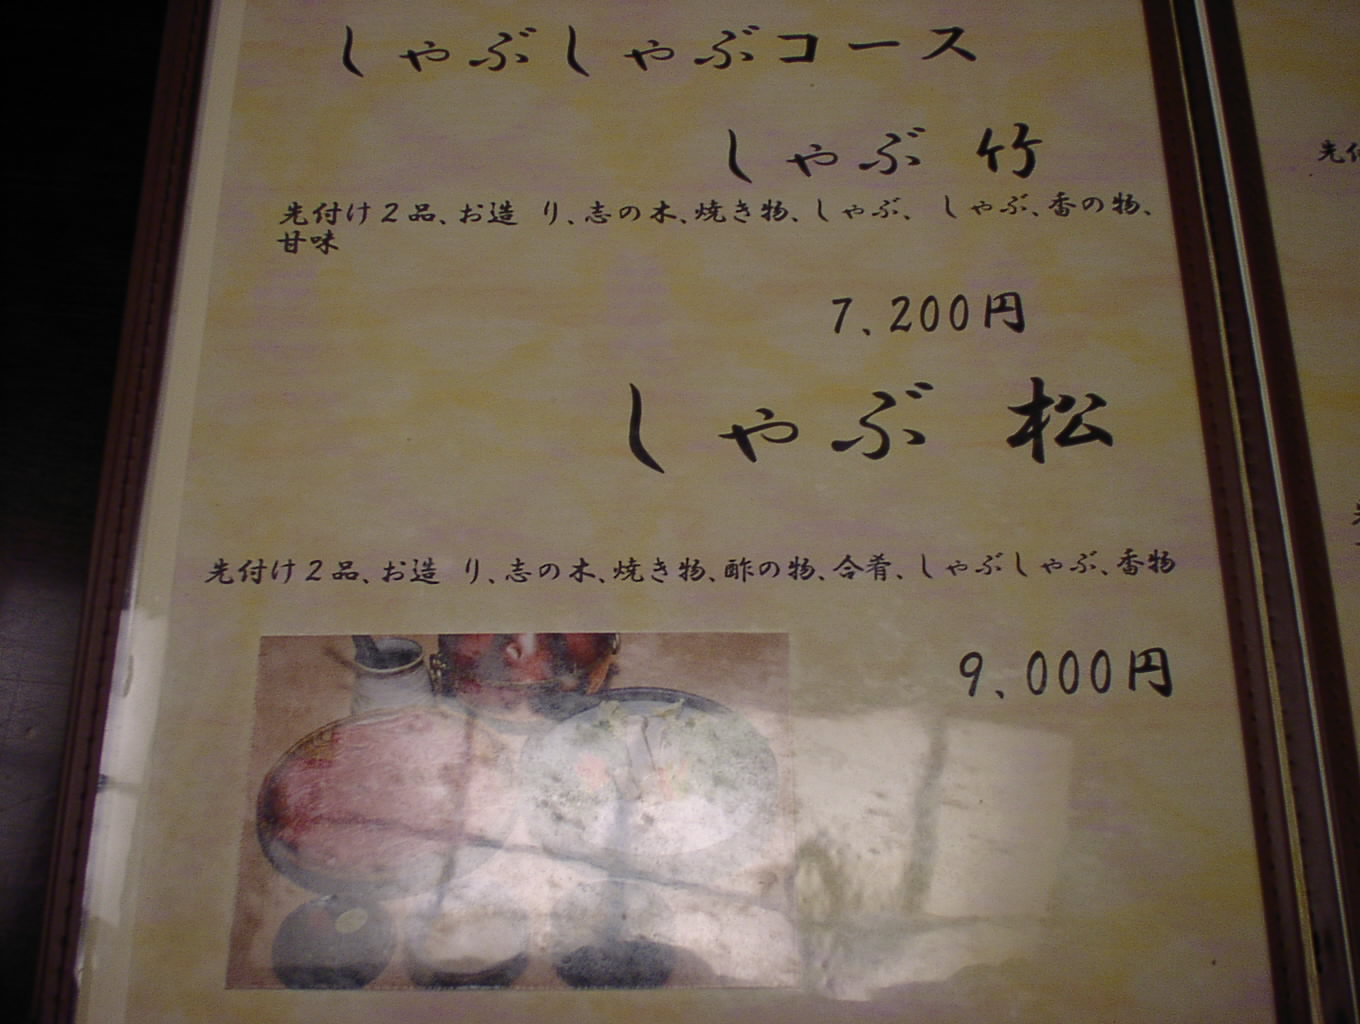 しゃぶしゃぶコース
しゃぶ 竹
先付け２品、お造 り、志の木、焼き物、しゃぶ、 しゃぶ、香の物、
甘味
7、200円
しゃぶ 松
先付け２品、お造 り、志の木、焼き物、酢の物、合肴、しゃぶしゃぶ、香物
9、000円
先付